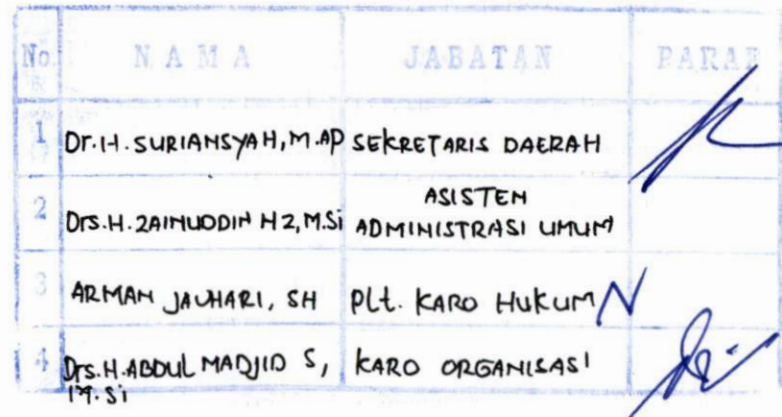 No. N A M A JABATAN PARAF
1 Dr. H. SURIANSYAH, M.AP SEKRETARIS DAERAH
2 Drs. H. ZAINUDDIN HZ, M.Si ASISTEN
ADMINISTRASI UMUM
3 ARMAN JAUHARI, SH Plt. KARO HUKUM
4 Drs. H. ABDUL MADJID S, KARO ORGANISASI
M.Si